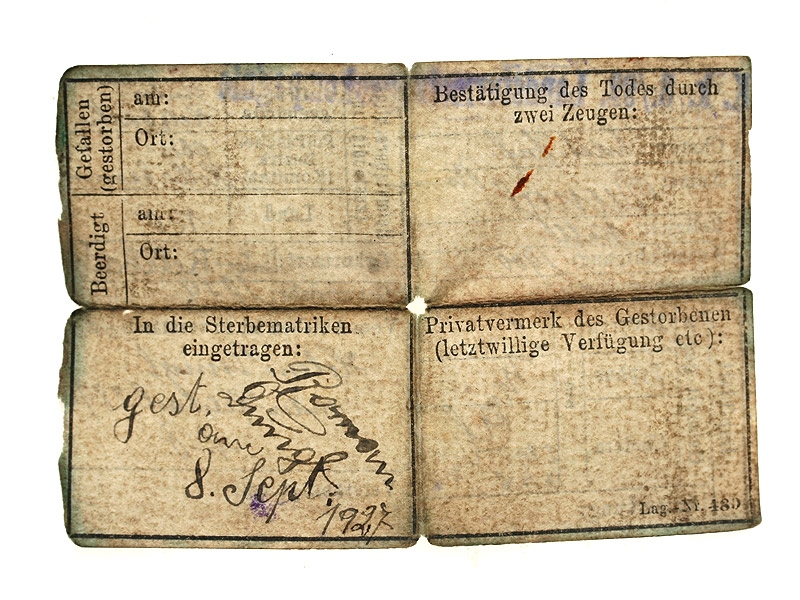 Gefallen
(gestorben)
am:
Ort:
Beerdigt
am:
Ort:
Bestätigung des Todes durch
zwei Zeugen:
In die Sterbematriken
eingetragen:
gest.
Roman
am
8. Sept.
1927
Privatvermerk des Gestorbenen
(letztwillige Verfügung etc):
Lag.-Nr. 489